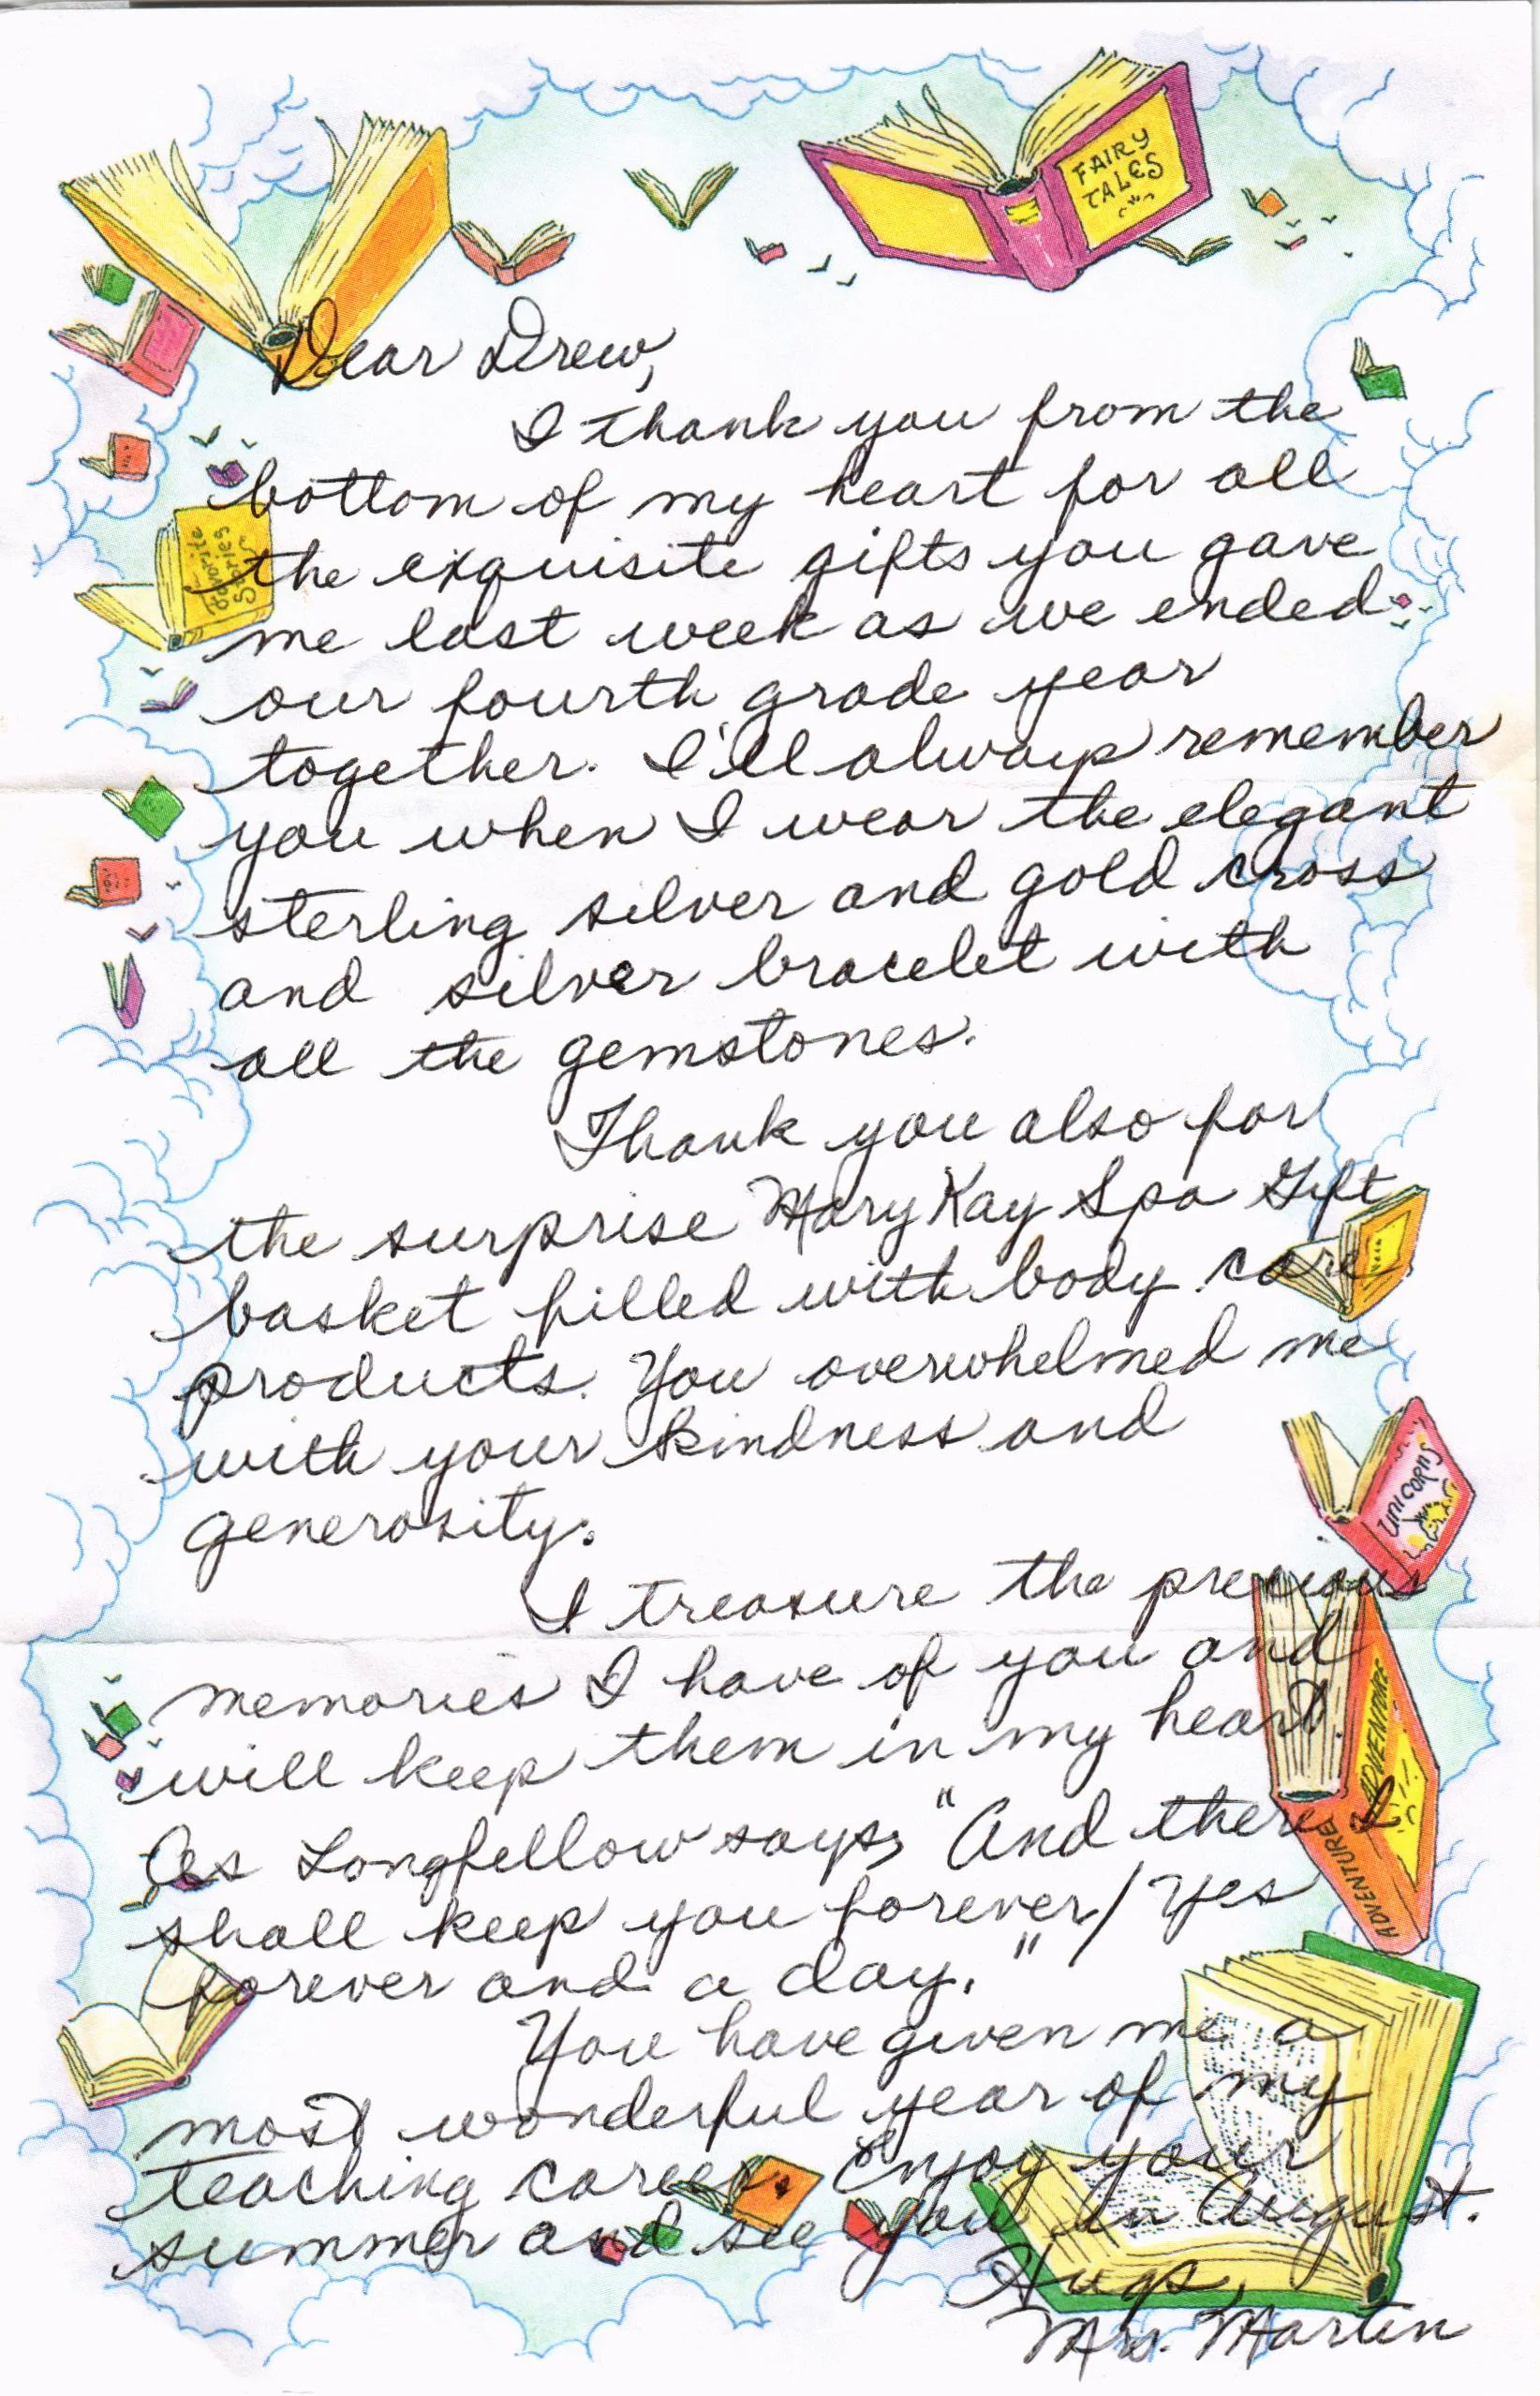 FAIRY
TALES
Dear Drew,
I thank you from the
bottom of my heart for all
Favorite
Stories
the exquisite gifts you gave
me last week as we ended
our fourth grade year
together. I'll always remember
you when I wear the elegant
sterling silver and gold cross
and silver bracelet with
all the gemstones.
Thank you also for
the surprise Mary Kay Spa Gift
basket filled with body care
products. You overwhelmed me
with your kindness and
generosity.
UNICORNS
I treasure the precious
memories I have of you and
will keep them in my heart.
ADVENTURE
ADVENTURE
As Longfellow says, "And there I
shall keep you forever/ Yes
forever and a day."
You have given me a
most wonderful year of my
teaching career. Enjoy your
summer and see you in August.
Hugs,
Mrs. Martin